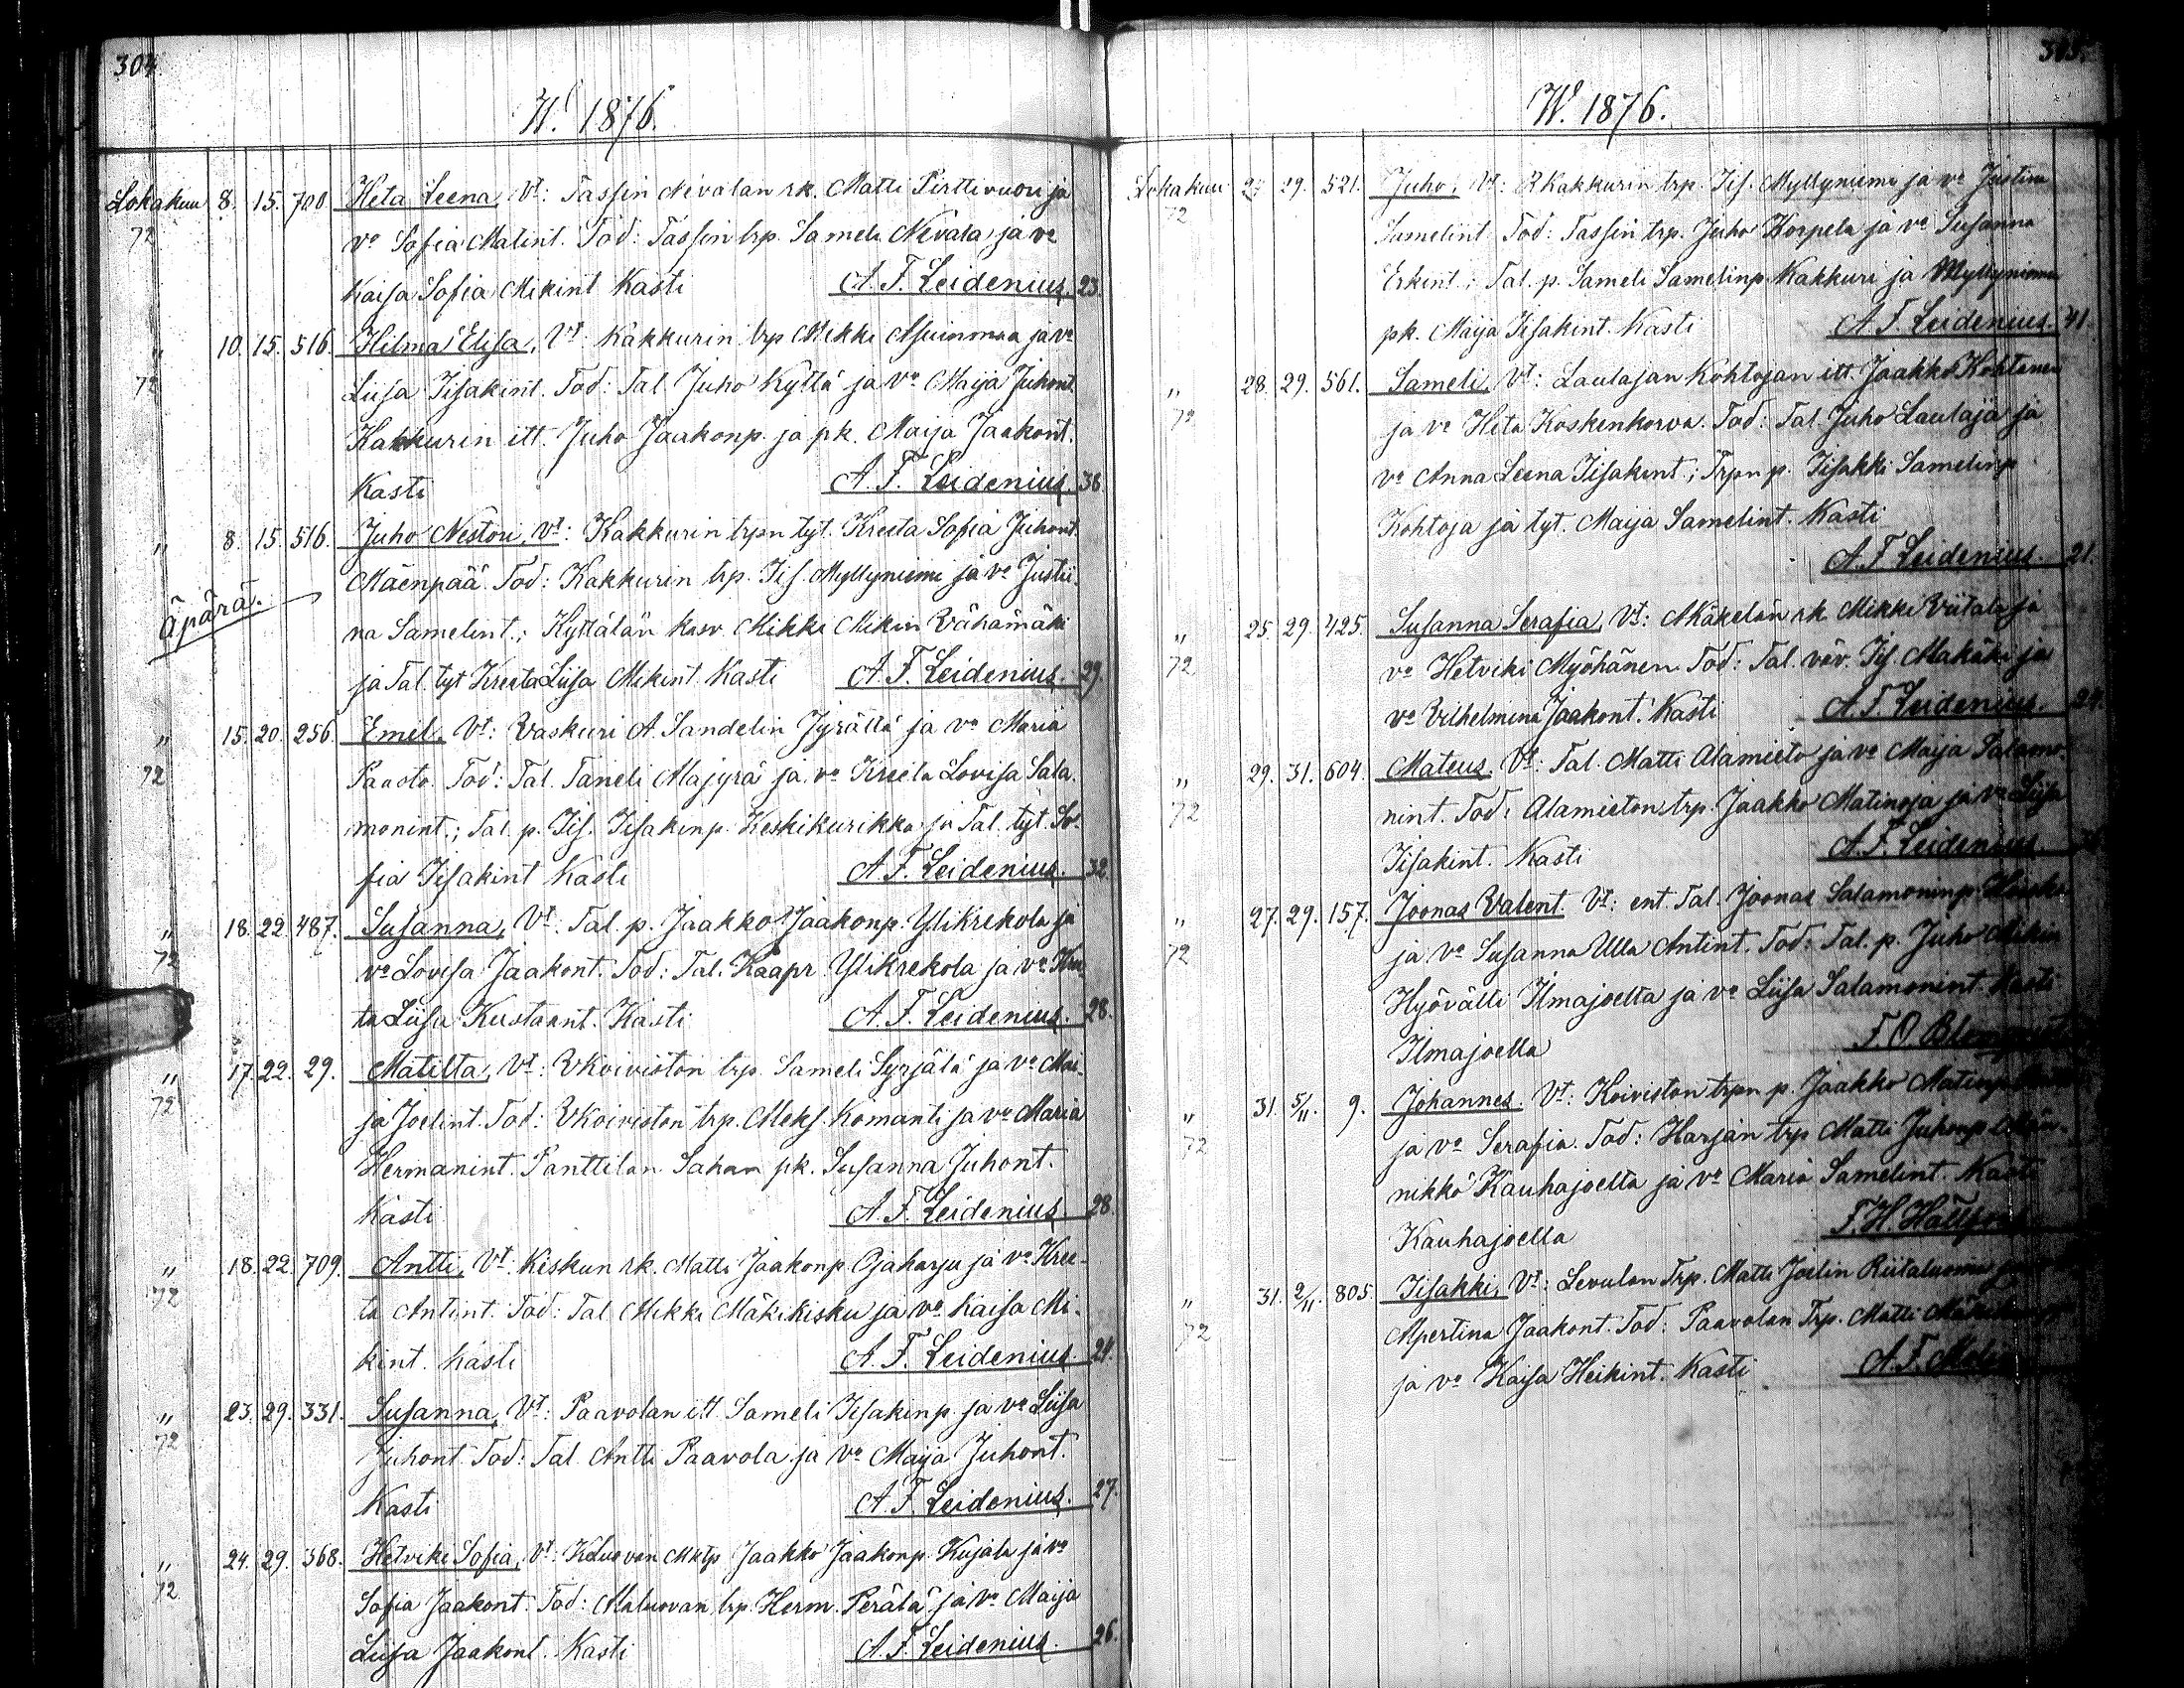 304
W. 1876.
Lokakuu 8. 15. 700. Heta Leena, Vt: Tassin Nevalan rk. Matti Pirttivuori ja
72 vo Sofia Matint. Tod: Tassin trp. Sameli Nevala ja vo
Kaisa Sofia Mikint Kasti A. F. Leidenius. 23
" 10. 15. 516. Hilma Elisa, Vt: Kakkurin trp Mikki Muinmaa ja vo
72 Liisa Iisakint. Tod: Tal. Juho Kyttä ja vo Maija Juhont.
Kakkurin itt. Juho Jaakonp. ja pk. Maija Jaakont.
Kasti A. F. Leidenius. 36
" 8. 15. 516. Juho Nestori, Vt: Kakkurin trpn tyt. Kreeta Sofia Juhont.
Mäenpää. Tod: Kakkurin trp. Iis. Myllyniemi ja vo Justii-
Äpärä. na Samelint.; Kyttälän kasv. Mikki Mikin Vähämäki
ja Tal. tyt Kreeta Liisa Mikint. Kasti A. F. Leidenius. 29.
" 15. 20. 256. Emil. Vt: Vaskuri A. Sandelin Jyrältä ja vo Maria
72 Paasto. Tod: Tal. Taneli Majyrä ja vo Kreeta Lovisa Sala-
monint.; Tal. p. Iis. Iisakinp. Keskikurikka ja Tal. tyt. So-
fia Iisakint Kasti A. F. Leidenius. 32.
" 18. 22. 487. Susanna, Vt: Tal. p. Jaakko Jaakonp. Ylikrekola ja
72 vo Lovisa Jaakont. Tod: Tal. Kaapr. Ylikrekola ja vo Kree-
ta Liisa Kustaant. Kasti A. F. Leidenius. 28.
" 17. 22. 29. Matilta, Vt: VKoiviston trp. Sameli Syrjälä ja vo Mai-
72 ja Joelint. Tod: VKoiviston trp. Meks. Komanti ja vo Maria
Hermanint. Panttilan Sahan pk. Susanna Juhont.
Kasti A. F. Leidenius. 28
" 18. 22. 709. Antti, Vt: Kiskun rk. Matti Jaakonp. Ojaharju ja vo Kree-
72 ta Antint. Tod: Tal Mikki Mäkikisku ja vo Kaisa Mi-
kint. Kasti A. F. Leidenius. 21.
" 23. 29. 331. Susanna, Vt: Paavolan itt. Sameli Iisakinp. ja vo Liisa
72 Juhont. Tod: Tal. Antti Paavola ja vo Maija Juhont.
Kasti A. F. Leidenius. 27.
" 24. 29. 368. Hetviki Sofia, Vt: Jaakko Jaakonp. Kujala ja vo
72 Sofia Jaakont. Tod: Maluovan trp. Herm. Perälä ja vo Maija
Liisa Jaakont. Kasti A. F. Leidenius. 26.
305.
W. 1876.
Lokakuu 29. 521. Juho, Vt: RKakkurin trp. Iis. Myllyniemi ja vo Justiina
72 Samelint Tod: Tassin trp. Juho Korpela ja vo Susanna
Erkint.; Tal. p. Sameli Samelinp. Kakkuri ja Myllyniemen
pk. Maija Iisakint. Kasti A. F. Leidenius. 41
" 28. 29. 561. Sameli, Vt: Laulajan Kohtojan itt. Jaakko Kohtanen
72 ja vo Heta Koskenkorva. Tod: Tal. Juho Laulaja ja
vo Anna Leena Iisakint.; Trpn p. Iisakki Samelinp
Kohtoja ja tyt. Maija Samelint. Kasti
A. F. Leidenius. 21.
" 25. 29. 425. Susanna Serafia, Vt: Mäkelän rk. Mikki Viitala ja
72 vo Hetviki Myöhänen. Tod: Tal. väv. Iis. Makäki ja
vo Vilhelmina Jaakont. Kasti A. F. Leidenius. 24.
" 29. 31. 604. Mateus. Vt: Tal. Matti Alamieto ja vo Maija Salamo-
72 nint. Tod: Alamieton trp. Jaakko Matinoja ja vo Liisa
Iisakint. Kasti A. F. Leidenius.
" 27. 29. 157. Joonas Valent. Vt: ent. Tal. Joonas Salamoninp.
72 ja vo Susanna Ulla Antint. Tod: Tal. p. Juho Mikin
Hyövälti Ilmajoelta ja vo Liisa Salamonint. Kasti
Ilmajoella F. O. Blomqvist
" 31. 5/11. 9. Johannes. Vt: Koiviston trpn p. Jaakko Matinp.
72 ja vo Serafia. Tod: Harjan trp Matti Juhonp. Män-
nikkö Kauhajoelta ja vo Maria Samelint. Kasti
Kauhajoella F. H. Hällfors
" 31. 2/11. 805. Iisakki, Vt: Levulan Trp. Matti Joelin Riitaluoma ja vo
72 Mpertina Jaakont. Tod: Paavolan Trp. Matti
ja vo Kaisa Heikint. Kasti A. F.